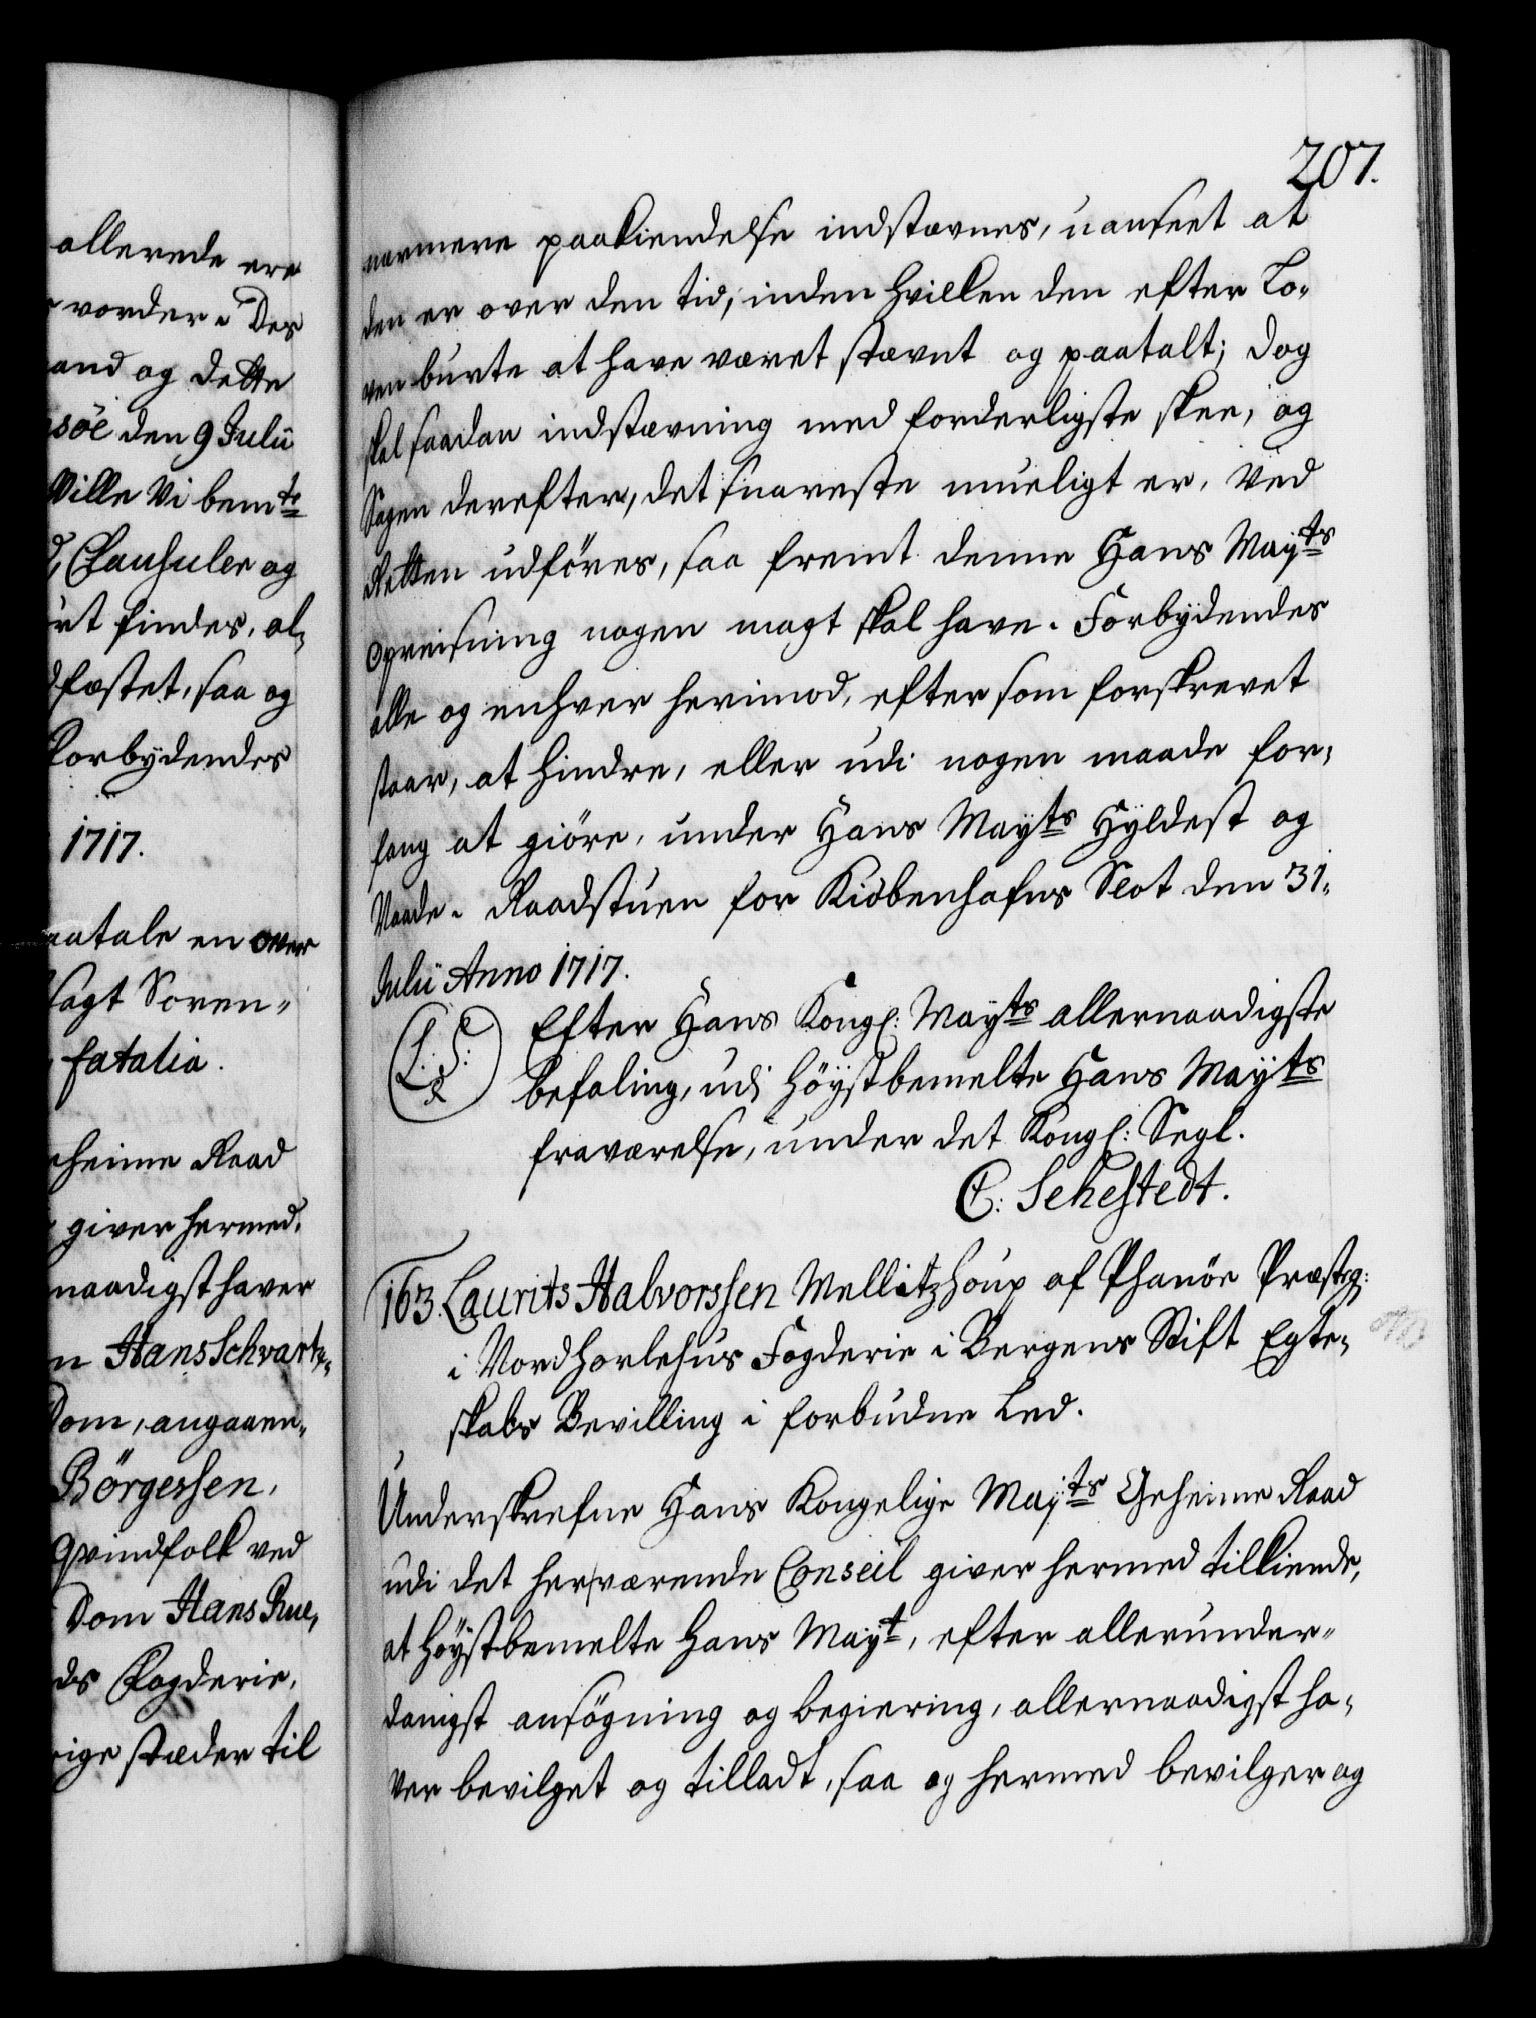 allerede ere
vorder. Des
and og dette
søe den 9 Julii
Ville Vi bemte
Clausuler og
rt findes, al-
dfæstet, saa og
Forbydendes
1717.
aatale en over
sagt Soren-
fatalia.
eheime Raad
giver hermed,
naadigst haver
n Hans Schvartz-
Dom, angaaen-
Börgersen,
Qvindfolk ved
Dom Hans Rue,
ds Fogderie,
rige stæder til
207.
nærmere paakiendelse indstævnes, uanseet at
den er over den tid, inden hvilken den efter Lo-
ven burte at have været stævnt og paatalt; dog
skal saadan indstævning med forderligste skee, og
Sagen derefter, det snareste mueligt er, Ved
Retten udføres, saa fremt denne Hans Mayts
Opreisning nogen magt skal have. Forbydendes
alle og enhver herimod, efter som forskrevet
staar, at hindre, eller udi nogen maade for-
fang at giöre, under Hans Mayts Hyldest og
Naade. Raadstuen for Kiöbenhafns Slot den 31.
Julii Anno 1717.
(L: S:) Efter Hans Kongl: Mayts allernaadigste
befaling, udi Höystbemelte Hans Mayts
fraværelse, under det Kongl: Segl.
C: Sehestedt.
163. Laurits Halvorssen Mellitzhoup af Phanöe Præsteg:
i Nordhorlehus Fogderie i Bergens Stift Egte-
skabs Bevilling i forbudne Led.
Underskrefne Hans Kongelige Mayts Geheime Raad
udi det herværende Conseil giver hermed tilkiende,
at Höystbemelte Hans Mayt, efter allerunder-
danigst ansögning og begiering, allernaadigst ha-
ver bevilget og tilladt, saa og hermed bevilger og